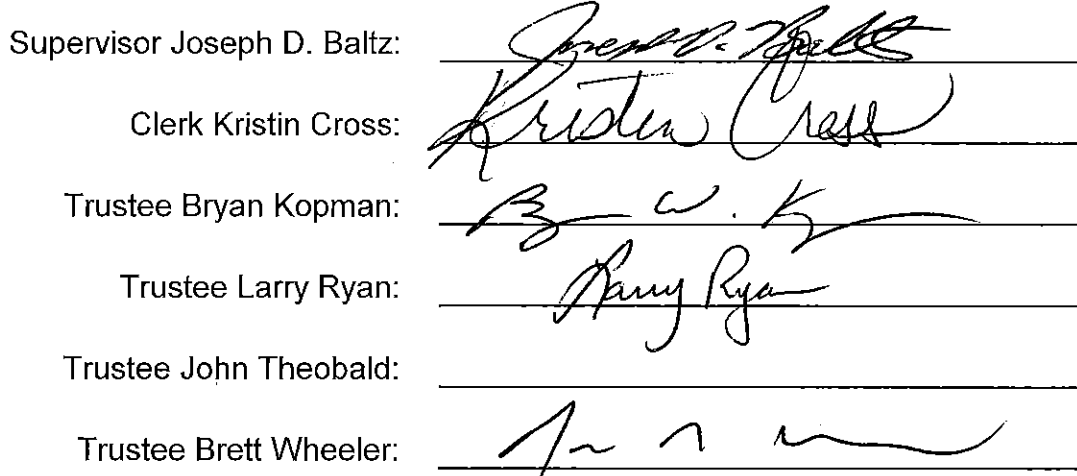 Supervisor Joseph D. Baltz: Joseph D. Baltz
Clerk Kristin Cross: Kristin Cross
Trustee Bryan Kopman: B W. K
Trustee Larry Ryan: Larry Ryan
Trustee John Theobald:
Trustee Brett Wheeler: